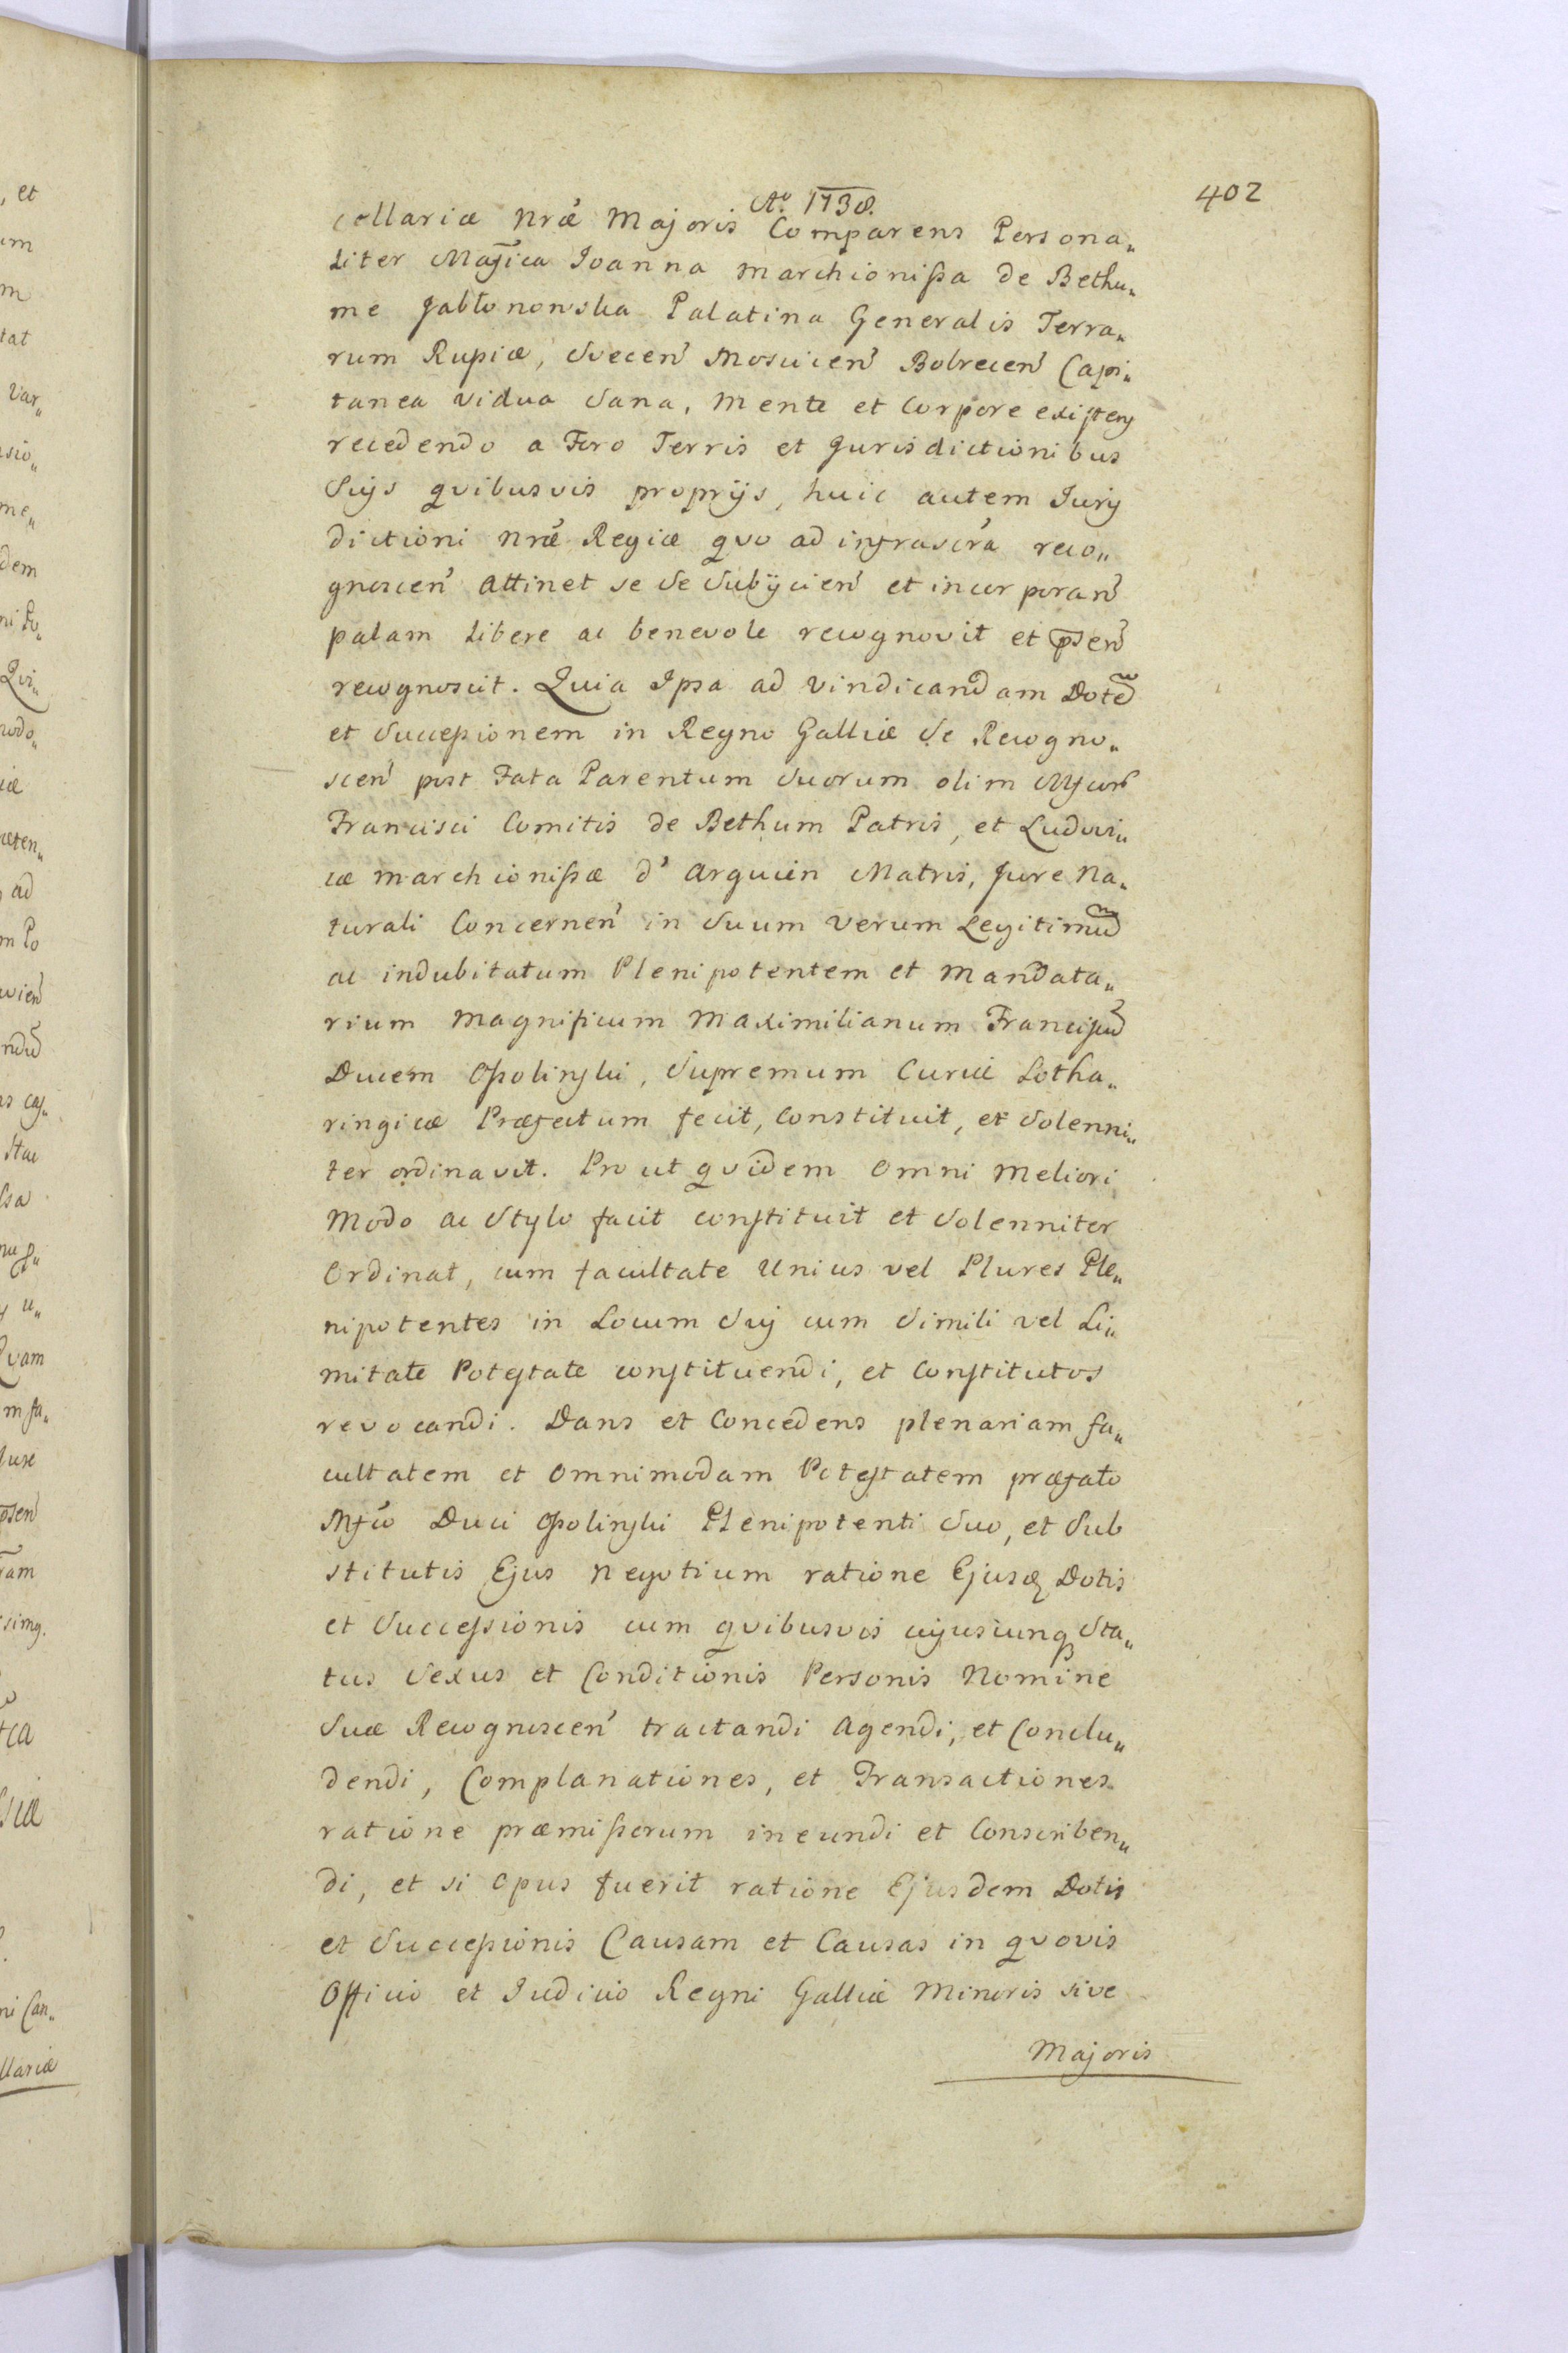 402
Ao. 1738.
cellariæ Nræ Majoris Comparens Persona„
liter Magica Joanna Marchionissa de Bethu„
me Jabłonowska Palatina Generalis Terra„
rum Russiæ, Svecen Moscicen Bobrecen Capi„
tanea vidua Sana, Mente et Corpore existens
recedendo a Foro Terris et Jurisdictionibus
Suijs qvibusvis proprijs, huic autem Juris
dictioni Nræ Regiæ qvo ad infrascra reco„
gnoscen attinet se se Subijcien et incorporan
palam Libere ac benevole recognovit et psen
recognoscit. Quia Ipsa ad vindicandam Dotem
et Successionem in Regno Galliæ Se Recogno„
scen post Fata Parentum Suorum olim Mfcorum
Francisci Comitis de Bethum Patris, et Ludovi„
cæ Marchionissæ d' Arquien Matris, Jure Na„
turali Concernen in Suum Verum Legitimum
ac indubitatum Plenipotentem et Mandata„
rium Magnificum Maximilianum Franciscum
Ducem Ossolinski, Supremum Curiæ Lotha„
ringicæ Præfectum fecit, constituit, et Solenni„
ter ordinavit. Pro ut qvidem Omni Meliori
Modo ac Stylo facit constituit et Solenniter
Ordinat, cum facultate Unius vel Plures Ple„
nipotentes in Locum Sui cum Simili vel Li„
mitate Potestate constituendi, et Constitutos
revocandi. Dans et Concedens plenariam fa„
cultatem et Omnimodam Potestatem præfato
Mfco Duci Ossolinski Plenipotenti Suo, et Sub
stitutis Ejus Negotium ratione Ejusd Dotis
et Successionis cum qvibusvis cujuscunq Sta„
tus Sexus et Conditionis Personis Nomine
Suæ Recognoscen tractandi Agendi, et Conclu„
dendi, Complanationes, et Transactiones
ratione præmissorum ineundi et Conscriben„
di, et si opus fuerit ratione Ejusdem Dotis
et Successionis Causam et Causas in qvovis
Officio et Judicio Regni Galliæ Minoris sive
Majoris